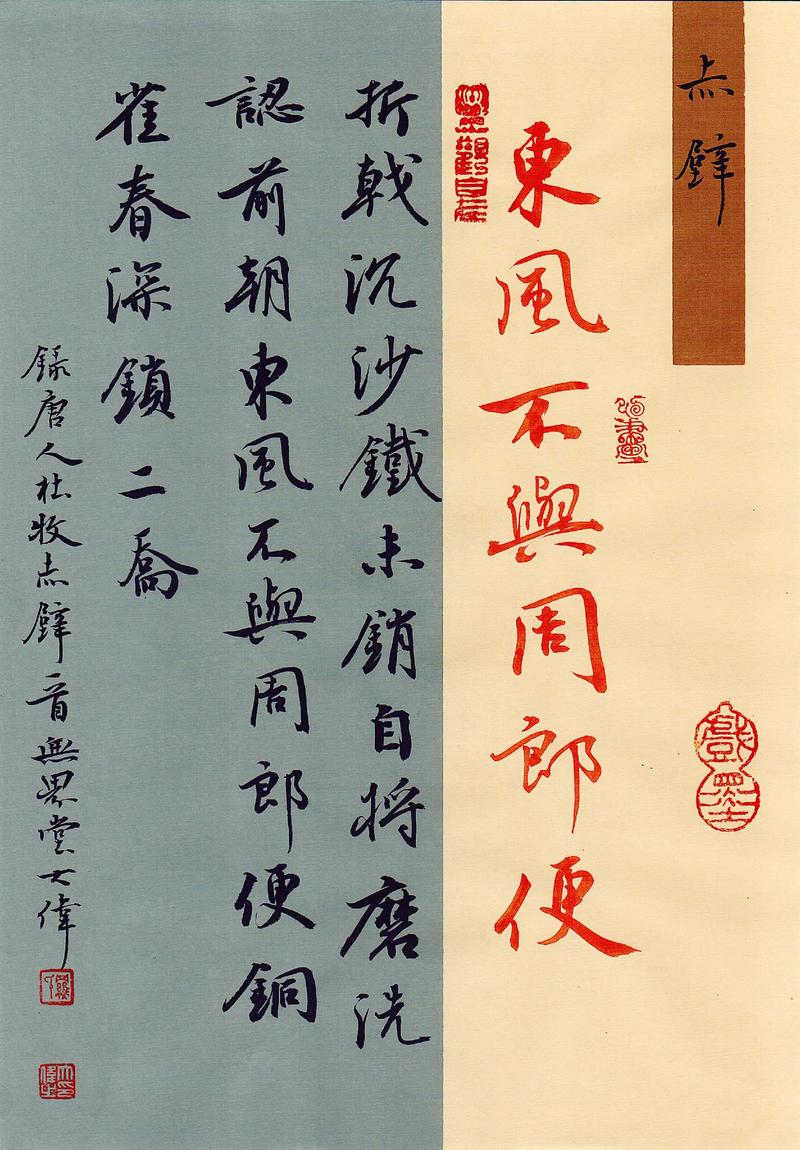 赤壁
東風不與周郎便
戲墨
折戟沉沙鐵未銷自将磨洗
認前朝東風不與周郎便銅
雀春深鎖二喬
錄唐人杜牧赤壁首無界堂大偉